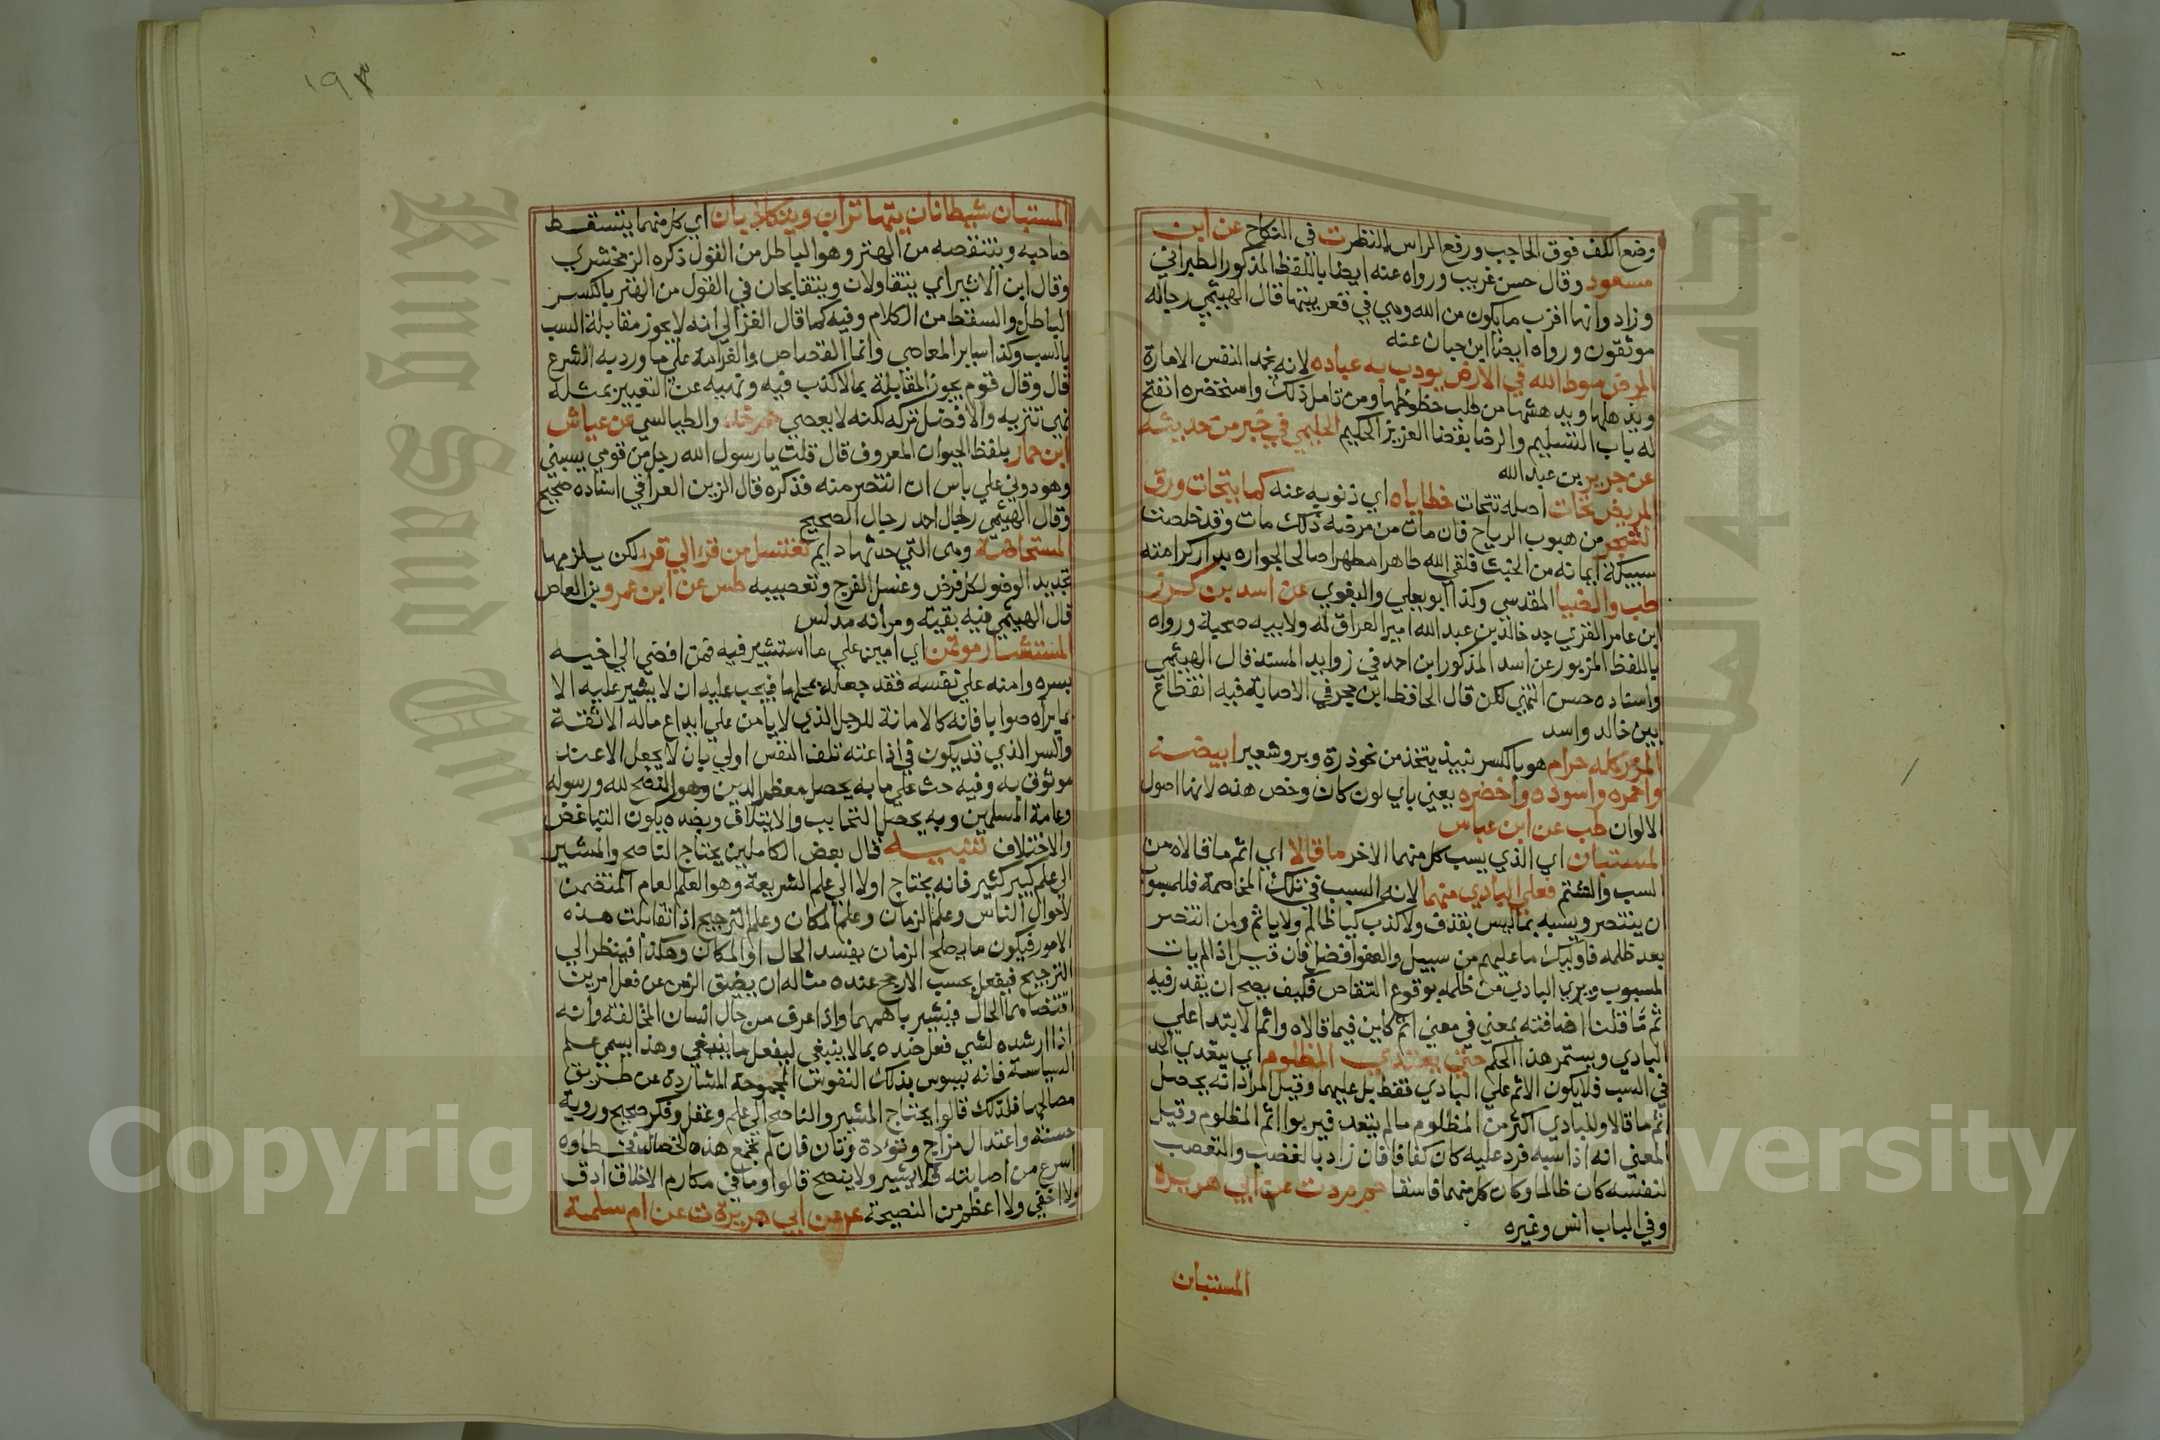 وضع الكف فوق الحاجب ورفع الراس للنظر ت في النكاح عن ابن
مسعود وقال حسن غريب ورواه عنه ايضا باللفظ المذكور الطبراني
وزاد وانها اقرب ما يكون من الله وهي في قعر بيتها قال الهيثمي رجاله
موثقون ورواه ايضا ابن حبان عنه
المرض سوط الله في الارض يودب به عباده لانه يخمد النفس الامارة
ويذهلها ويدهشها من طلب حظوظها ومن تامل ذلك واستحضره انفتح
له باب التسليم والرضا بقضا العزيز الحكيم الخليلي في خبر من حديثه
عن جرير بن عبد الله
المريض تحات اصله تتحات خطاياه اي ذنوبه عنه كما يتحات ورق
الشجر من هبوب الرياح فان مات من مرضه ذلك مات وقد خلصت
سبيكة ايمانه من الخبث فلقي الله طاهرا مطهرا صالحا لجواره بدار كرامته
طب والضيا المقدسي وكذا ابو يعلي والبغوي عن اسد بن كرز
ابن عامر القزي جد خالد بن عبد الله امير العراق له ولابيه صحبة ورواه
باللفظ المزبور عن اسد المذكور ابن احمد في زوايد المسند قال الهيثمي
واسناده حسن انتهي لكن قال الحافظ ابن حجر في الاصابة فيه انقطاع
بين خالد واسد
المزر كله حرام هو بالكسر نبيذ يتخذ من نحو ذرة وبر وشعير ابيضه
واحمره واسوده واخضره يعني باي لون كان وخص هذه لانها اصول
الالوان طب عن ابن عباس
المستبان اي الذي يسب كل منهما الاخر ما قالا اي اثم ما قالاه من
السب والشتم فعلي البادي منهما لانه السبب في تلك المخاصمة فللمسبوب
ان ينتصر ويسبه بما ليس بقذف ولا كذب كيا ظالم ولا ياثم ولمن انتصر
بعد ظلمه فاوليك ما عليهم من سبيل والعفو افضل فان قيل اذا لم يات
المسبوب ويبري البادي من ظلمه بوقوع التقاص فكيف يصح ان يقدر فيه
ثم ما قلنا اضافته بمعني في معني اثم كاين فيما قالاه واثم الابتدا علي
البادي ويستمر هذا الحكم حتي يعتدي المظلوم اي يتعدي الحد
في السب فلا يكون الاثم علي البادي فقط بل عليهما وقيل المراد انه يحصل
اثم ما قالا وللبادي اكثر من المظلوم ما لم يتعد فيربوا اثم المظلوم وقيل
المعني انه اذا سبه فرد عليه كان كفافا فان زاد بالغضب والتعصب
لنفسه كان ظالما وكان كل منهما فاسقا حم م د ت عن ابي هريرة
وفي الباب انس وغيره
المستبان
١٩٣
المستبان شيطانان يتهاتران ويتكاذبان اي كل منهما يتسقط
صاحبه ويتنقصه من الهتر وهو الباطل من القول ذكره الزمخشري
وقال ابن الاثير اي يتقاولان ويتقابحان في القول من الهتر بالكسر
الباطل والسقط من الكلام وفيه كما قال الغزالي انه لا يجوز مقابلة السب
بالسب وكذا ساير المعاصي وانما القصاص والغرامة علي ما ورد به الشرع
قال وقال قوم يجوز المقابلة بما لا كذب فيه ونهيه عن التعيير بمثله
نهي تنزيه والافضل تركه لكنه لا يعصي حم خد والطيالسي عن عياض
ابن حمار بلفظ الحيوان المعروف قال قلت يا رسول الله رجل من قومي يسبني
وهو دوني علي باس ان انتصر منه فذكره قال الزين العراقي اسناده صحيح
وقال الهيثمي رجال احمد رجال الصحيح
المستحاضة وهي التي حدثها دايم تغتسل من قرء الي قرء لكن يلزمها
تجديد الوضو لكل فرض وغسل الفرج وتعصيبه طس عن ابن عمرو بن العاص
قال الهيثمي فيه بقية ومر انه مدلس
المستشار موتمن اي امين علي ما استشير فيه فمن افضي الي اخيه
بسره وامنه علي نفسه فقد جعله بمحلها فيجب عليه ان لا يشير عليه الا
بما يراه صوابا فانه كالامانة للرجل الذي لا يأمن علي ايداع ماله الا ثقة
والسر الذي قد يكون في اذاعته تلف النفس اولي بان لا يجعل الا عند
موثوق به وفيه حث علي ما به يحصل معظم الدين وهو النصح لله ورسوله
وعامة المسلمين وبه يحصل التحابب والايتلاف وبضده يكون التباغض
والاختلاف تنبيه قال بعض الكاملين يحتاج الناصح والمشير
الي علم كبير كثير فانه يحتاج اولا الي علم الشريعة وهو العلم العام المتضمن
لاحوال الناس وعلم الزمان وعلم المكان وعلم الترجيح اذا تقابلت هذه
الامور فيكون ما يصلح الزمان يفسد الحال او المكان وهكذا فينظر الي
الترجيح فيفعل بحسب الارجح عنده مثاله ان يضيق الزمن عن فعل امرين
اقتضاهما الحال فيشير باهمهما واذا عرف من حال انسان المخالفة وانه
اذا ارشده لشي فعل ضده بما لا ينبغي ليفعل ما ينبغي وهذا يسمي علم
السياسة فانه يسوس بذلك النفوس الجموحة الشاردة عن طريق
مصالحها فلذلك قالوا يحتاج المشير والناصح الي علم وعقل وفكر صحيح وروية
حسنة واعتدال مزاج وتؤدة وتان فان لم تجمع هذه الخصال فخطاوه
اسرع من اصابته فلا يشير ولا ينصح قالوا وما في مكارم الاخلاق ادق
ولا اخفي ولا اعظم من النصيحة عن ابي هريرة ت عن ام سلمة
King Saud University
Copyright © King Saud University